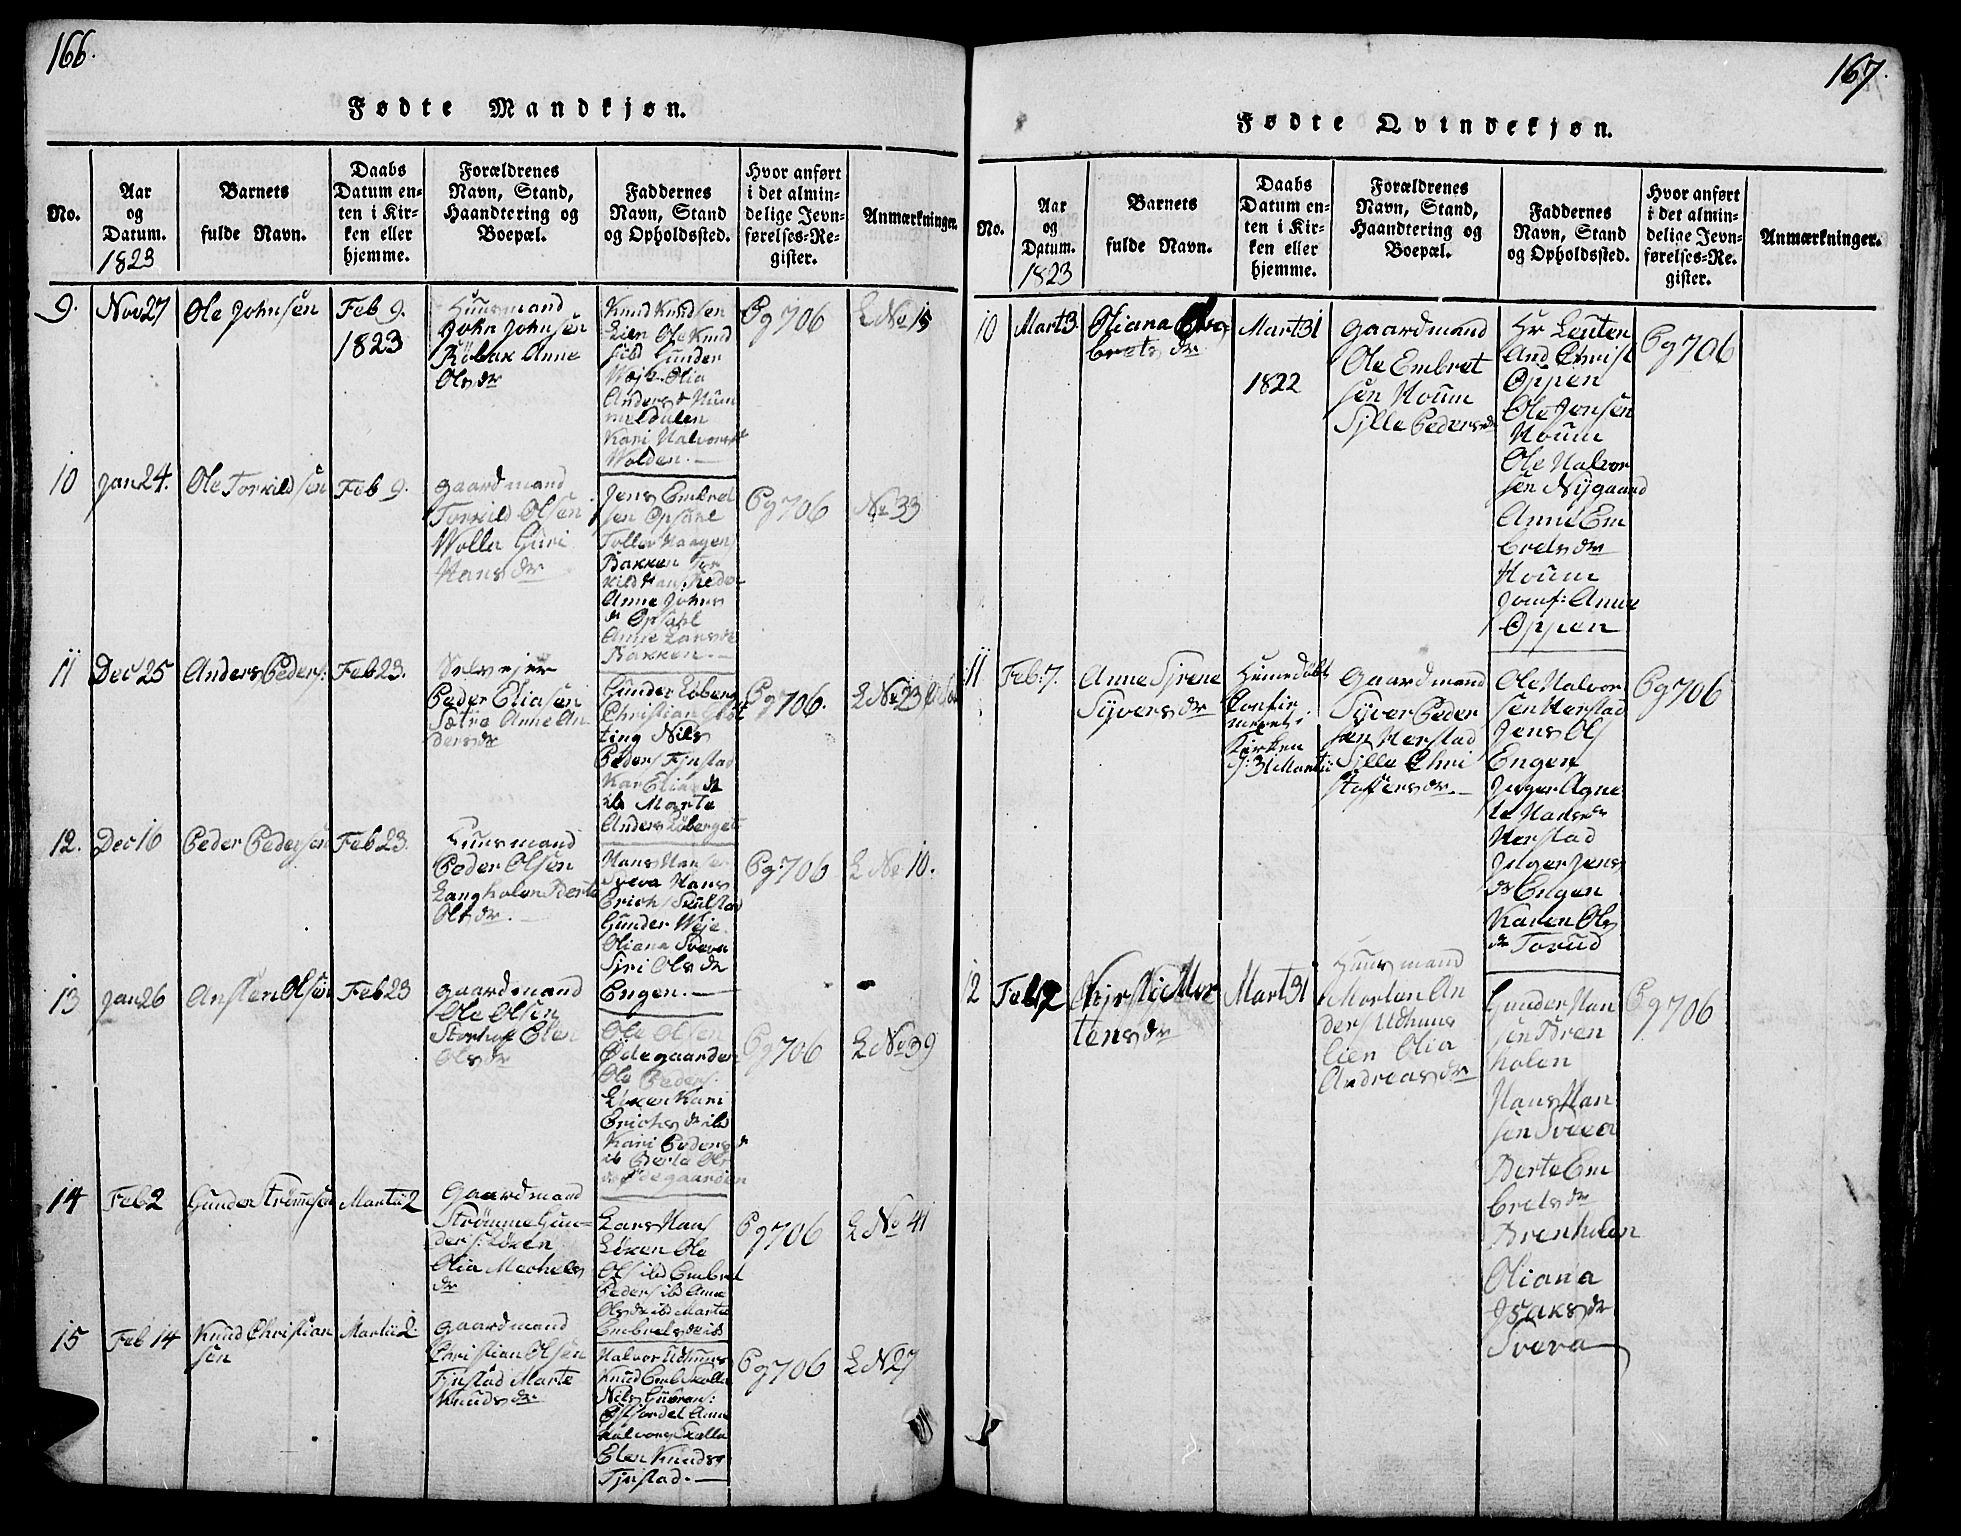 166.
Fødte Mandkjøn.
No.
Aar
og
Datum.
1823
Barnets
fulde Navn.
Daabs
Datum en-
ten i Kir-
ken eller
hjemme.
Forældrenes
Navn, Stand,
Haandtering og
Boepæl.
Faddernes
Navn, Stand
og Opholdssted.
Hvor anført
i det almin-
delige Jevn-
førelses-Re-
gister.
Anmærkninger.
9.
Nov 27
Ole Johnsen
Feb 9.
1823
Huusmand
John Johnsen
Anne
Olsdr
Knud Knudsen
Lien Ole Knud
Gunder
Olia
Anders
Kari Halvors
Wolden.
Pg 706
L No 15
10
Jan 24.
Ole Torkildsen
Feb 9.
Gaardmand
Torkild Olsen
Wolla Guri
Hansdr
Jens Embret
sen Opsahl
Bakken Tor
Anne Johns
dr Opsahl
Anne Larsdr
Bakken.
Pg 706
No 33
11
Dec 25
Anders Peders:
Feb 23.
Selveier
Peder Eliasen
Sætre Anne An
dersdr
Gunder Løberg
Christian
ting Nils
Peders Finstad
Kari Elias dr
ib Marte
Anders Løberget
Pg 706.
L No 23
12.
Dec 16
Peder Pedersen
Feb 23.
Huusmand
Peder Olsen
Langholen Berte
Olsdr.
Hans Hanse
Sveva Hans
Erichs
Gunder Weje
Oliana Sveva
Siri Olsdr
Engen.
Pg 706
L No 10.
13
Jan 26
Ansten Olsen
Feb 23
Gaardmand
Ole Olsen
Elen
Olsdr
Ole Olsen
Ødegaarden
Ole Peders:
Løken Kari
Erichsdr ib
Kari Peders dr
ib Berta Ols
dr Ødegaarden
Pg 706
L No 39
14
Feb 2
Gunder Strømesen
Martii 2
Gaardmand
Strømme Gun-
ders: Løken
Olia Mechels
dr
Lars Hans
Løken Ole
Ols ibd Embret
Peders ib Anne
Olsdr ibd Marte
Embretsdr ib
Pg 706
L No 41
15
Feb 14
Knud Christian
sen
Martii 2
Gaardmand
Christian Olsen
Finstad Marte
Knudsdr
Halvor
Knud Emb
Nils
Anne
Halvors
Elen Knuds
Finstad.
Pg 706
L N 27
167.
Fødte Qvindekjøn.
No.
Aar
og
Datum.
1823
Barnets
fulde Navn.
Daabs
Datum en-
ten i Kir-
ken eller
hjemme.
Forældrenes
Navn, Stand,
Haandtering og
Boepæl.
Faddernes
Navn, Stand
og Opholdssted.
Hvor anført
i det almin-
delige Jevn-
førelses-Re-
gister.
Anmærkninger.
10
Mart 3.
Oliana
bretsdr
Mart 31
1822
Gaardmand
Ole Embret
sen Houm
Sille Pedersdr
Hr Leuten
And Christ
Oppen
Ole Jensen
Houm
Ole Halvor
sen Nygaard
Anne Em
bretsdr
Houm
Jomf: Anne
Oppen
Pg 706
11
Feb: 7.
Anne Sirene
Syversdr
Hiemedøbt
Confir
meret i
Kirken
d: 31 Martii
Gaardmand
Syver Peder
sen Herstad
Sille Chri
stoffersdr.
Ole Halvor
sen Herstad
Jens Ols
Engen
Inger Agne
te Hansdr
Herstad
Inger Jens
dr Engen
Karen Ols
dr Torud
Pg 706
12
Feb 2
Kjersti Mor
tensdr
Mart 31
Huusmand
Morten An
ders Udhuus
lien Olia
Andreasdr
Gunder Han
sen Bren
holen
Hans Han
sen Sveva
Berte Em
bretsdr
Brenholen
Oliana
Isaksdr
Sveva
Pg 706